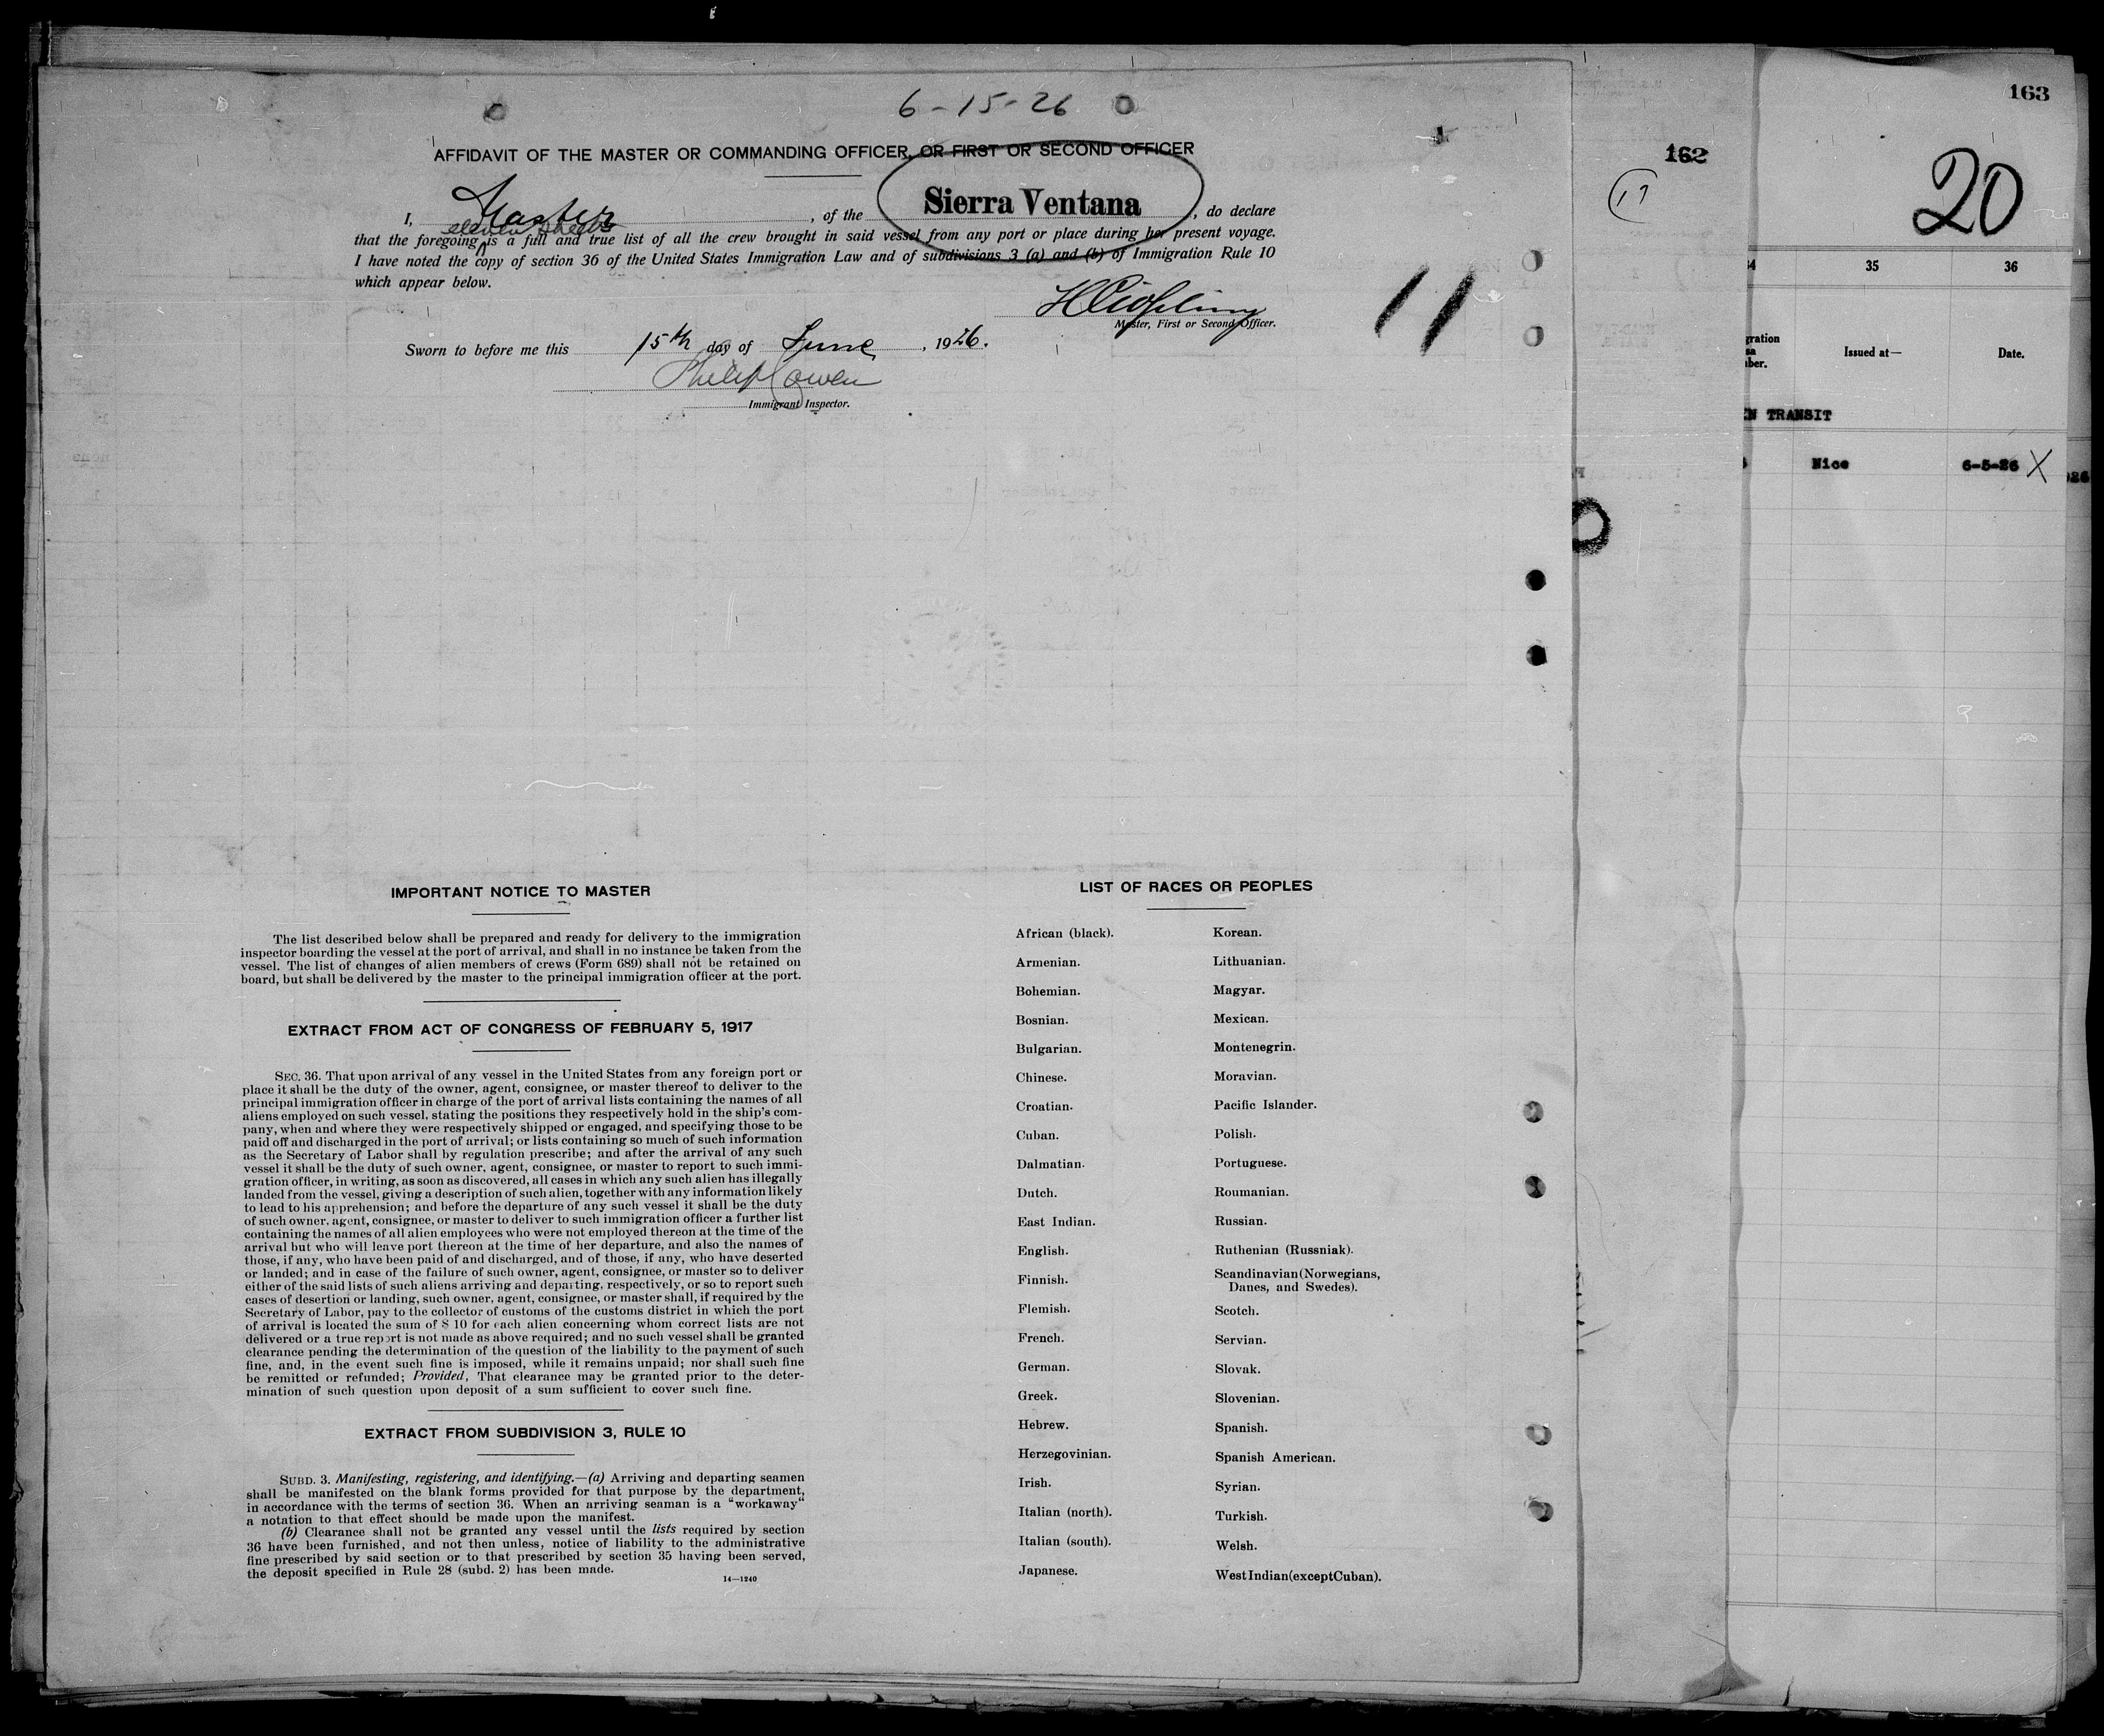 6-15-26
AFFIDAVIT OF THE MASTER OR COMMANDING OFFICER, OR FIRST OR SECOND OFFICER
I, Master, of the Sierra Ventana, do declare
eleven sheets
that the foregoing is a full and true list of all the crew brought in said vessel from any port or place during her present voyage.
I have noted the copy of section 36 of the United States Immigration Law and of subdivisions 3 (a) and (b) of Immigration Rule 10
which appear below.
Master, First or Second Officer.
11
Sworn to before me this 15th day of June, 1926.
Immigrant Inspector.
IMPORTANT NOTICE TO MASTER
The list described below shall be prepared and ready for delivery to the immigration
inspector boarding the vessel at the port of arrival, and shall in no instance be taken from the
vessel. The list of changes of alien members of crews (Form 689) shall not be retained on
board, but shall be delivered by the master to the principal immigration officer at the port.
EXTRACT FROM ACT OF CONGRESS OF FEBRUARY 5, 1917
SEC. 36. That upon arrival of any vessel in the United States from any foreign port or
place it shall be the duty of the owner, agent, consignee, or master thereof to deliver to the
principal immigration officer in charge of the port of arrival lists containing the names of all
aliens employed on such vessel, stating the positions they respectively hold in the ship's com-
pany, when and where they were respectively shipped or engaged, and specifying those to be
paid off and discharged in the port of arrival; or lists containing so much of such information
as the Secretary of Labor shall by regulation prescribe; and after the arrival of any such
vessel it shall be the duty of such owner, agent, consignee, or master to report to such immi-
gration officer, in writing, as soon as discovered, all cases in which any such alien has illegally
landed from the vessel, giving a description of such alien, together with any information likely
to lead to his apprehension; and before the departure of any such vessel it shall be the duty
of such owner. agent, consignee, or master to deliver to such immigration officer a further list
containing the names of all alien employees who were not employed thereon at the time of the
arrival but who will leave port thereon at the time of her departure, and also the names of
those, if any, who have been paid of and discharged, and of those, if any, who have deserted
or landed; and in case of the failure of such owner, agent, consignee, or master so to deliver
either of the said lists of such aliens arriving and departing, respectively, or so to report such
cases of desertion or landing, such owner, agent, consignee, or master shall, if required by the
Secretary of Labor, pay to the collector of customs of the customs district in which the port
of arrival is located the sum of $ 10 for each alien concerning whom correct lists are not
delivered or a true report is not made as above required; and no such vessel shall be granted
clearance pending the determination of the question of the liability to the payment of such
fine, and, in the event such fine is imposed, while it remains unpaid; nor shall such fine
be remitted or refunded; Provided, That clearance may be granted prior to the deter-
mination of such question upon deposit of a sum sufficient to cover such fine.
EXTRACT FROM SUBDIVISION 3, RULE 10
SUBD. 3. Manifesting, registering, and identifying.—(a) Arriving and departing seamen
shall be manifested on the blank forms provided for that purpose by the department,
in accordance with the terms of section 36. When an arriving seaman is a “workaway“
a notation to that effect should be made upon the manifest.
(b) Clearance shall not be granted any vessel until the lists required by section
36 have been furnished, and not then unless, notice of liability to the administrative
fine prescribed by said section or to that prescribed by section 35 having been served,
the deposit specified in Rule 28 (subd. 2) has been made.
14—1240
LIST OF RACES OR PEOPLES
African (black).
Armenian.
Bohemian.
Bosnian.
Bulgarian.
Chinese.
Croatian.
Cuban.
Dalmatian.
Dutch.
East Indian.
English.
Finnish.
Flemish.
French.
German.
Greek.
Hebrew.
Herzegovinian.
Irish.
Italian (north).
Italian (south).
Japanese.
Korean.
Lithuanian.
Magyar.
Mexican.
Montenegrin.
Moravian.
Pacific Islander.
Polish.
Portuguese.
Roumanian.
Russian.
Ruthenian (Russniak).
Scandinavian (Norwegians,
Danes, and Swedes).
Scotch.
Servian.
Slovak.
Slovenian.
Spanish.
Spanish American.
Syrian.
Turkish.
Welsh.
West Indian (except Cuban).
162
163
20
35
36
Issued at—
Date.
TRANSIT
Nice
6-5-26 X